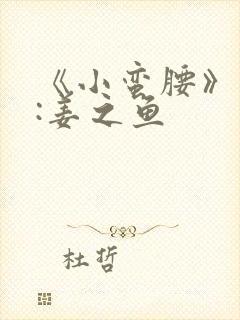 《小蛮腰》
:姜之鱼
杜哲